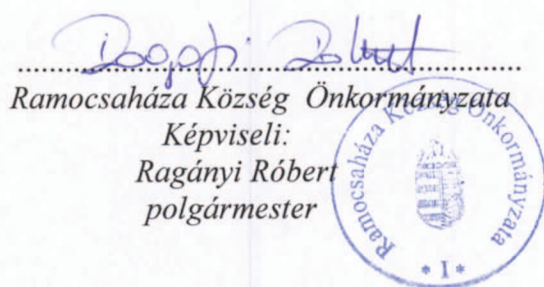 Ramocsaháza Község Önkormányzata
Képviseli:
Ragányi Róbert
polgármester
Ramocsaháza Község Önkormányzata
* I *